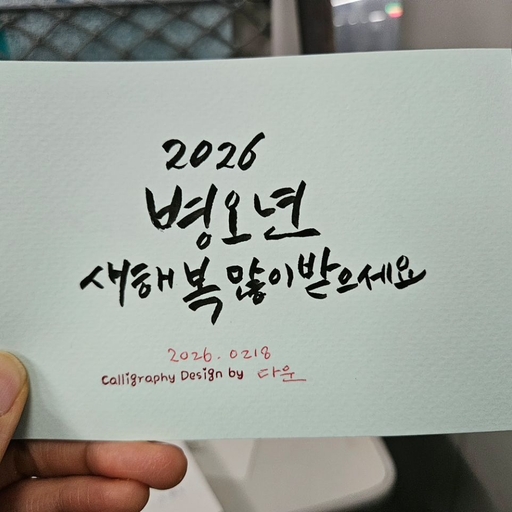 2026
병오년
새해 복 많이 받으세요
2026. 0218
Calligraphy Design by 다운